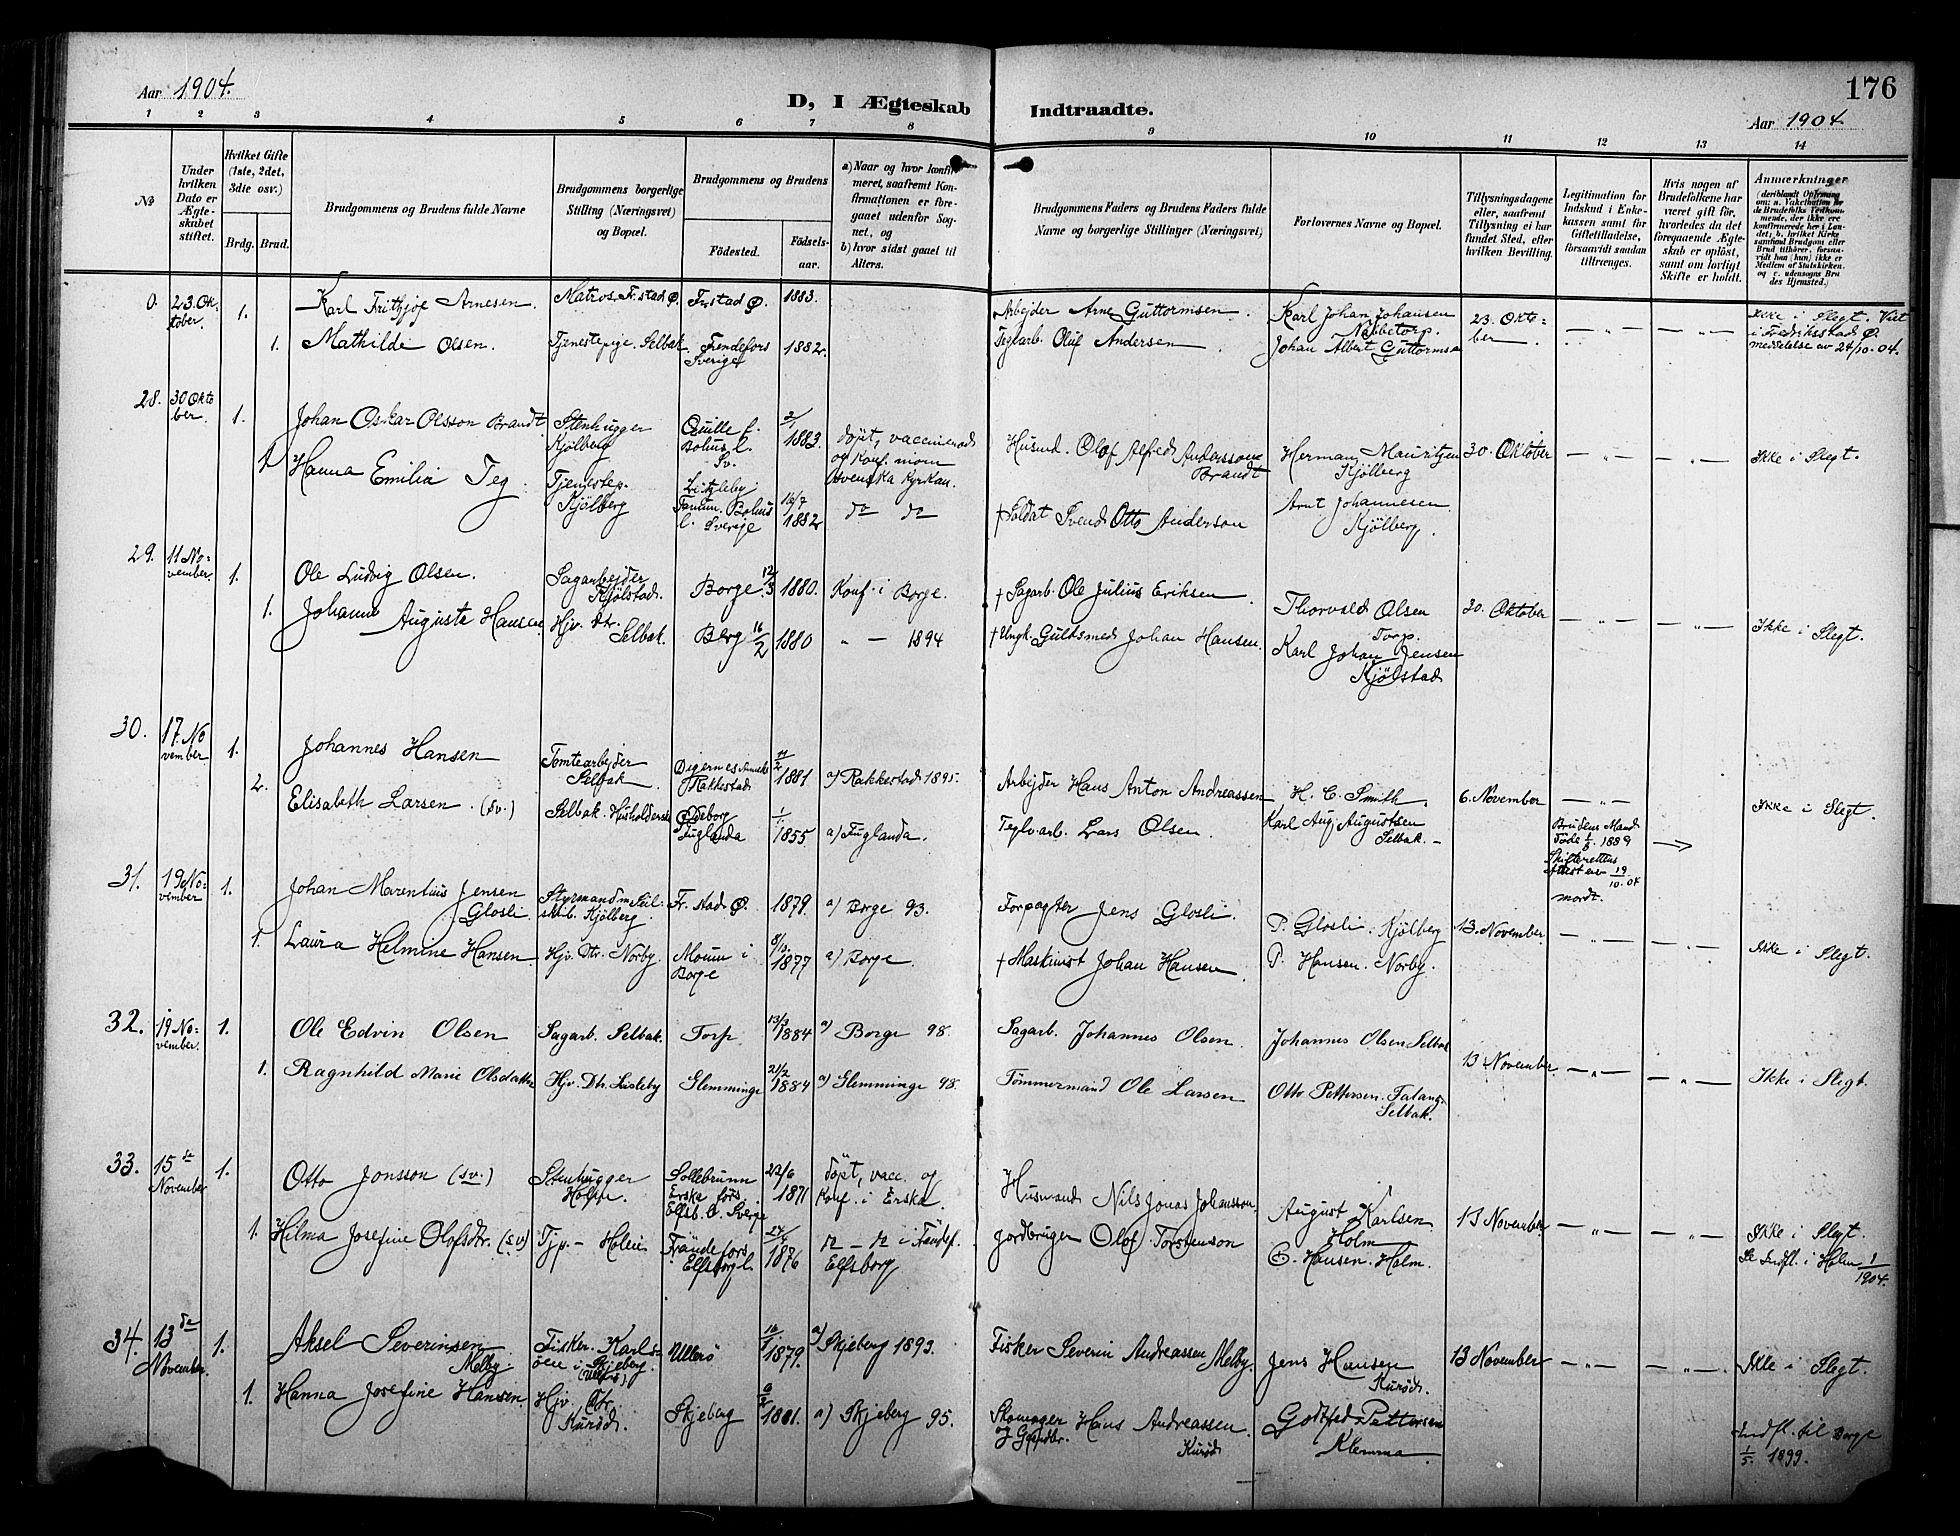 176
Aar 1904.
D, I Ægteskab Indtraadte.
Aar 1904.
1 2 3 4 5 6 7 8 9 10 11 12 13 14
No
Under hvilken Dato er Ægteskabet stiftet.
Hvilket Gifte (1ste, 2det, 3die osv.)
Brdg. Brud.
Brudgommens og Brudens fulde Navne
Brudgommens borgerlige Stilling (Næringsvei) og Bopæl.
Brudgommens og Brudens
Fødested.
Fødselsaar.
a) Naar og hvor konfirmeret, saafremt Konfirmationen er foregaaet udenfor Sognet, og
b) hvor sidst gaaet til Alters.
Brudgommens Faders og Brudens Faders fulde Navne og borgerlige Stillinger (Næringsvei)
Forlovernes Navne og Bopæl.
Tillysningsdagene eller, saafremt Tillysning ei har fundet Sted, efter hvilken Bevilling.
Legitimation for Indskud i Enkekassen samt for Giftetilladelse, forsaavidt saadan tiltrænges.
Hvis nogen af Brudefolkene har været gift før, hvorledes da det foregaaende Ægteskab er opløst, samt om lovligt Skifte er holdt.
Anmærkninger
0. 23. Oktober. 1. Karl Frithjof Arnesen. Matros. Fr.stad Ø. Frstad Ø. 1883. Arbejder Arne Guttormsen. Karl Johan Johansen Nabbetorp. 23. Oktober Ikke i Slegt. Viet i Fredrikstad Ø. meddelelse av 24/10.04.
1. Mathilde Olsen. Tjenestepige. Selbak. Frendefors Sverige 1882. Teglarb. Oluf Andersen Johan Albert Guttormsen
28. 30 Oktober 1. Johan Oskar Olsson Brandt Stenhugger Kjölberg Quille f. Bohus l. Sv. 2/1 1883. döpt, vaccinerad og konf. inom svenska kyrkan. Husmd. Olof Alfred Andersson Brandt Herman Mauritzen Kjölberg 30. Oktober Ikke i Slegt.
1. Hanna Emilia Teg. Tjenestep. Kjölberg Tanum. Bohus l. Sverige 16/7 1882 do do † Soldat Svend Otto Anderson Arnt Johannesen Kjölberg.
29. 11 November. 1. Ole Ludvig Olsen. Sagarbejder Kjölstad. Borge. 12/3 1880. Konf. i Borge. † Sagarb. Ole Julius Eriksen. Thorvald Olsen Torp. 30. Oktober Ikke i Slegt.
1. Johanne Auguste Hansen Hjv. Dtr. Selbak. Berg 16/2 1880 „ — 1894 † Ungk. Guldsmed Johan Hansen. Karl Johan Jensen Kjölstad
30. 17. November 1. Johannes Hansen Tomtearbejder Selbak. Rakkestad 11/2 1881 a) Rakkestad 1895. Arbejder Hans Anton Andreassen H. C. Smith. 6. November Ikke i Slegt.
2. Elisabeth Larsen. (sv.) Selbak. Husholderske Ödeborg Fuglanda 1/1 1855 a) Fuglanda. Teglv.arb. Lars Olsen. Karl Aug. Augustsen Selbak. Brudens Mand Døde 1/5 1889 Skifterettens Attest av 19/10.04
31. 19 November 1. Johan Marentius Jensen Glosli. Styrmand m Seilskib. Kjölberg. Fr.stad Ø. 1879. a) Borge 93. Forpagter Jens Glosli. P. Glosli. Kjölberg 13. November. Ikke i Slegt.
1. Laura Helmine Hansen. Hjv. Dtr. Norby. Moum i Borge 8/12 1877 a) Borge. † Maskinist Johan Hansen. P. Hansen. Norby.
32. 19 November. 1. Ole Edvin Olsen Sagarb. Selbak. Torp 13/3 1884 a) Borge 98. Sagarb. Johannes Olsen. Johannes Olsen Selbak 13 November. Ikke i Slegt.
1. Ragnhild Marie Olsdatter Hjv. Dtr. Lisleby Glemminge 21/2 1884 a) Glemminge 98. Tømmermand Ole Larsen Otto Pettersen. Selbak.
33. 15de November 1. Otto Jonsson (sv.) Stenhugger Holm. Sollebrunn Erske fors. Elfsb. l. Sverge 22/6 1871 döpt, vacc. og Konf. i Erska. Husmand Nils Jonas Johansson. August Karlsen Holm 13 November Ikke i Slegt. Indfl. i Holm 1/1904.
1. Hilma Josefine Olofsdtr. (sv) Tjp. Holm Frändefors Elfsborg l. 27/4 1876 Elfsborg Jordbruger Olof Torstenson E. Hansen. Holm.
34. 13de November. 1. Aksel Severinsen Melby. Fisker. Karlsöen i Skjeberg. Ullerö 16/1 1879. a) Skjeberg 1893. Fisker Severin Andreassen Melby. Jens Hansen Kuröd. 13 November Ikke i Slegt.
1. Hanna Josefine Hansen Hjv. Dtr. Kuröd. Skjeberg 9/2 1881. a) Skjeberg 95. Skomager Hans Andreassen. Kuröd Gottfed Pettersen Klemma Indfl. til Borge 1/5. 1899.